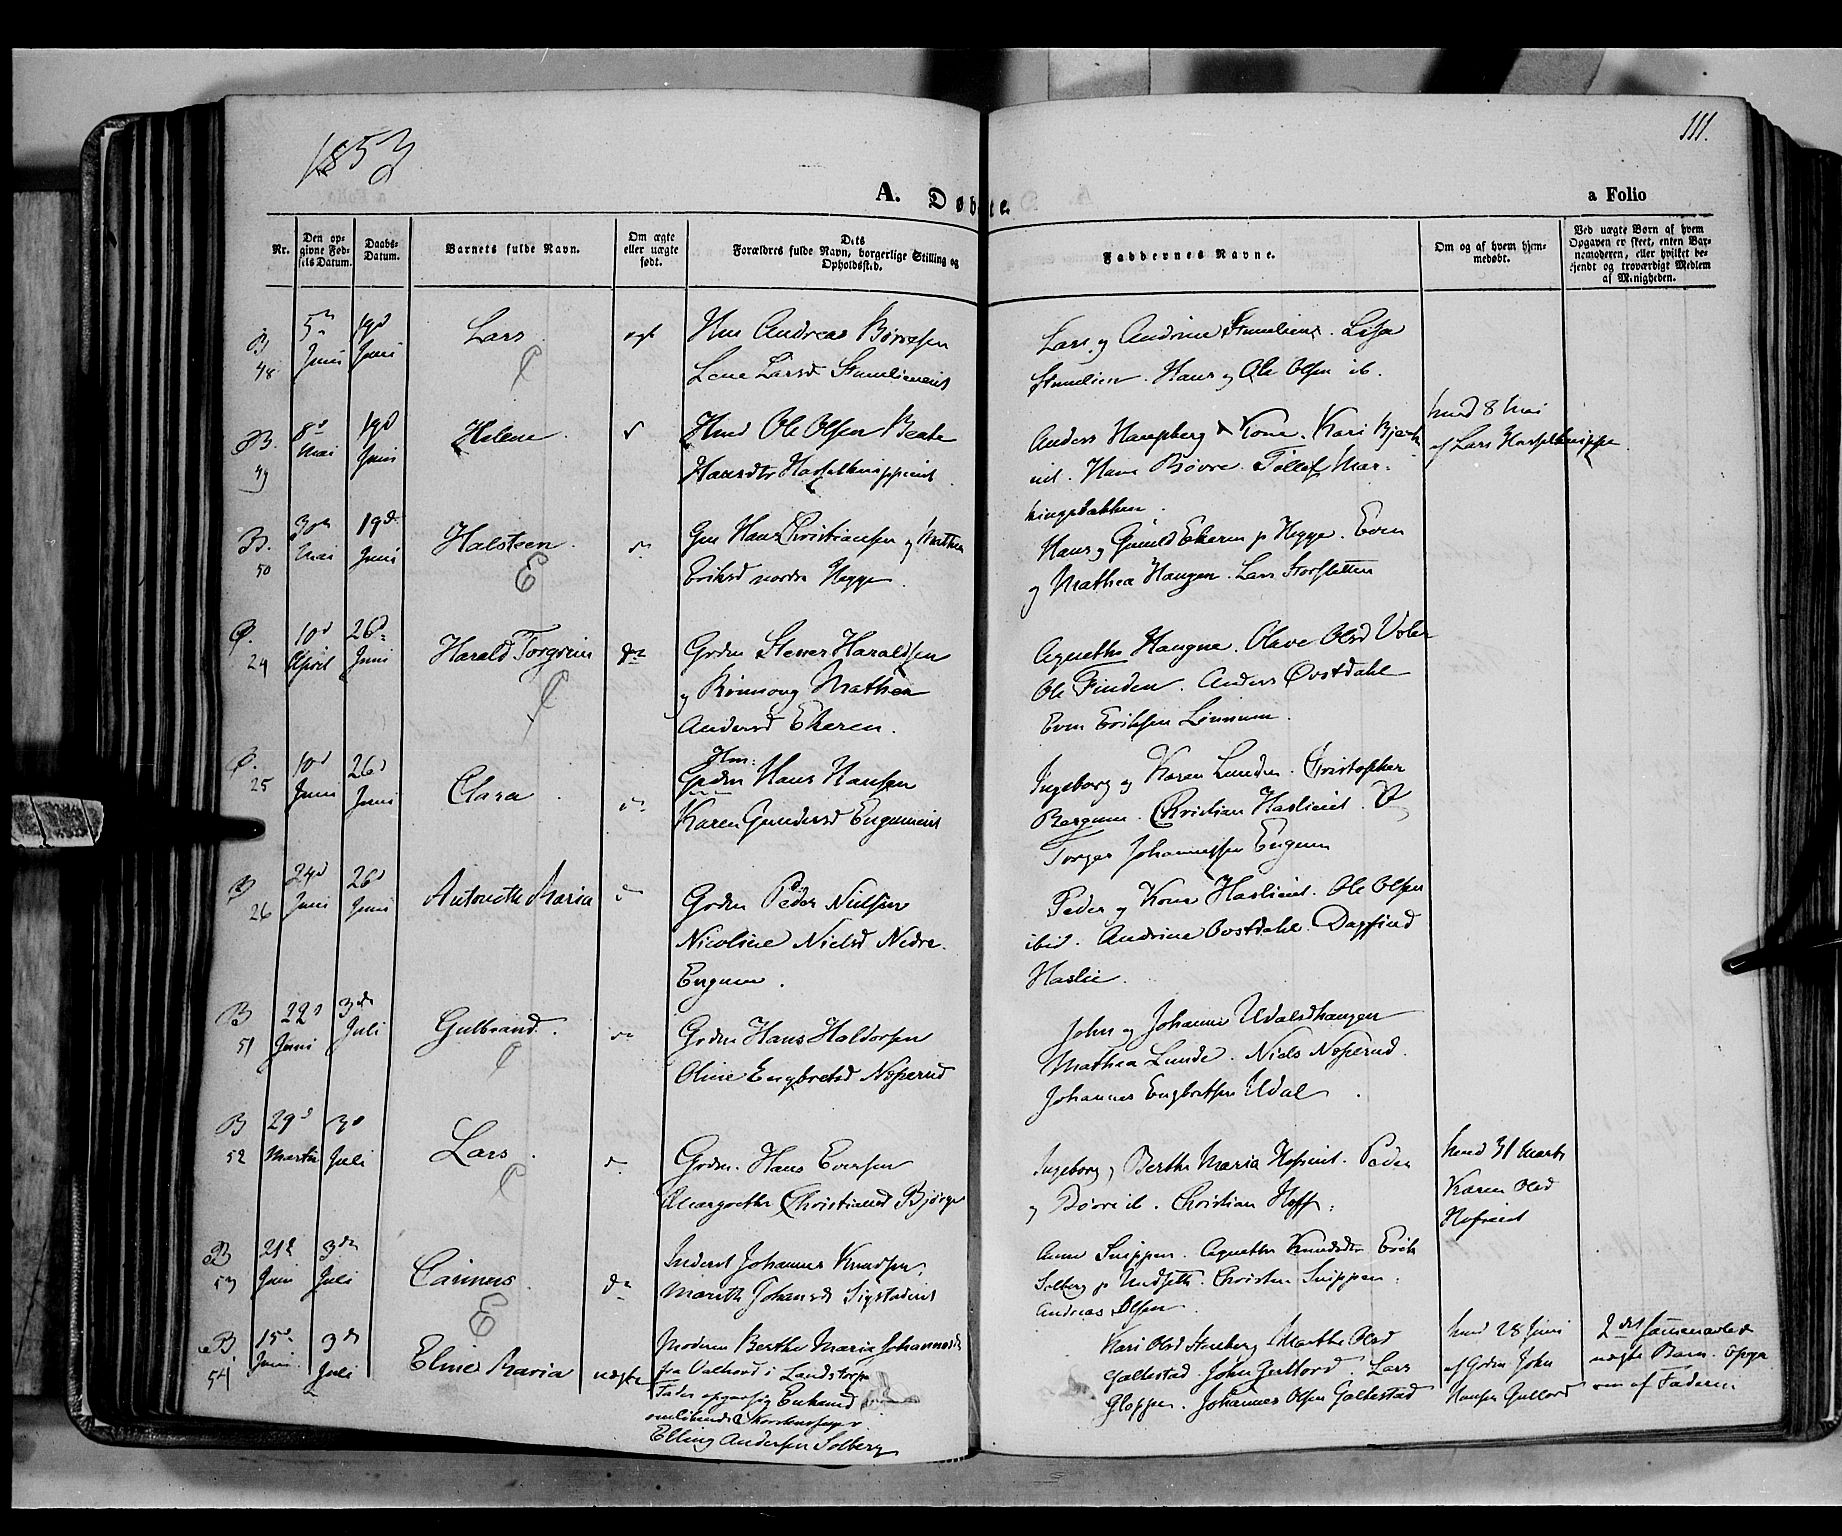 1853
111.
A. Døbte.
a Folio
Nr.
Den op-
givne Fød-
sels Datum.
Daabs-
Datum.
Barnets fulde Navn.
Om ægte
eller uægte
født.
Dets
Forældres fulde Navn, borgerlige Stilling og
Opholdssted.
Faddernes Navne.
Om og af hvem hjem-
medøbt.
Ved uægte Børn af hvem
Opgaven er skeet, enten Bar-
nemoderen, eller hvilket be-
kjendt og troværdigt Medlem
af Menigheden.
B 48
5 Juni
19d Juni
Lars
ægt
Hm Andreas Børresen
Lene Larsd
Lars og Andrine
Hans og Ole Olsen ib.
B. 49
8d Mai
19d Juni
Helene
Hmd Ole Olsen Beate
Hansdtr
Anders Haugsberg & Kone. Kari
Hans Bøvre.
hmd 8 Mai
af Lars
B. 50
Mai
19d Juni
Halsteen
E
Gm Hans Christiansen og Mathea
Eriksd nordre Hegge
Hans og Gunild Ekeren p Hegge. Even
og Mathea Haugen. Lars Storsletten
24
10d April
26d Juni
Harald Torgrim
do
Grdm Stener Haraldsen
og Rønnoug Mathea
Andersd Ekeren.
Agnethe Haugne. Olave Olsd
Ole Finden. Anders Øvstdahl
Even Eriksen Linnum.
25
10d Juni
26d Juni
Clara
Hm:
Grdm Hans Hansen
Karen Gundersd Engumeiet
Ingeborg og Karen Lunden. Christopher
Bergum. Christian Haslieiet.
Torger Johannessen Engum
26
24d Juni
26d Juni
Antonette Maria
Grdm Peder Nielsen
Nicoline Nielsd Nedre
Engum.
Peder og Kone Haslieiet. Ole Olsen
ibid. Andrine Øvstdahl. Dagfind
Haslie.
B 51
22d Juni
3de Juli
Gulbrand.
Grdm Hans Haldorsen
Oline Engbretsd Noperud
John og Johanne Udalshaugen
Mathea Lunde. Niels Noperud.
Johannes Engbretsen Udal.
B 52
29d Marts
3d Juli
Lars
Grdm. Hans Evensen
Margrethe Christiansd Bjørge
Ingeborg og Berthe Maria Hofseiet. Peder
og Bøvre ib. Christian Hoff.
hmd 31 Marts
Karen Olsd
Hofseiet
B 53
21d Juni
3de Juli
Carinus
E
do
Inderst Johannes Knudsen,
Marith Johansd Sigstadeiet
Anne Snippen. Agnethe Knudsdtr Erik
Solberg p. Christen Snippen.
Andreas Olsen.
B 54
15d Juni
3de Juli
Eline Maria
uægte
Moderen Berthe Maria Johannesd
fra i Landstorpe
Fader opgav sig Enkemd
omløbende Skorstensfeier
Elling Andersen Solberg
Kari Olsd Steenberg Marthe Olsd
Galtestad. John Gullord. Lars
Gloppe. Johannes Olsen Galtestad
hmd 28 Juni
af Grdm John
Hansen Gullord
2det sammenavlede
uægte Barn. Opga-
ven af Faderen